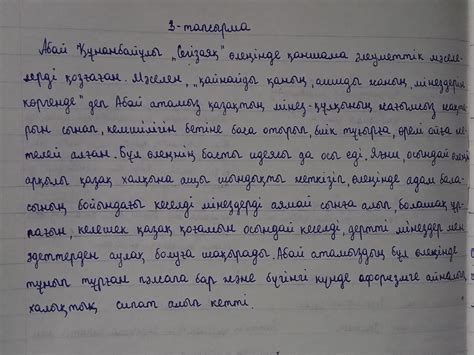 3-тапсырма
Абай Құнанбайұлы „Сегізаяқ" өлеңінде қаншама әлеуметтік мәселе-
лерді қозғаған. Мәселен, „қайнайды қаның, ашиды жаның, мінездерін
көргенде" деп Абай атамыз қазақтың мінез-құлқының жағымсыз жақта-
рын сынап, кемшілігін бетіне баса отырып, биік тұғырға, өрелі ойға же-
телей алған. Бұл өлеңнің басты идеясы да осы еді. Яғни, осындай өлең
арқылы қазақ халқына ащы шындықты жеткізіп, өлеңінде адам бала-
сының бойындағы кеселді мінездерді аямай сынға алып, болашақ ұр-
пағын, келешек қазақ қоғамын осындай кеселді, дертті мінездер мен
әдеттерден аулақ болуға шақырады. Абай атамыздың бұл өлеңінде
тұнып тұрған пәлсапа бар және бүгінгі күнде афоризмге айналып,
халықтық сипат алып кетті.